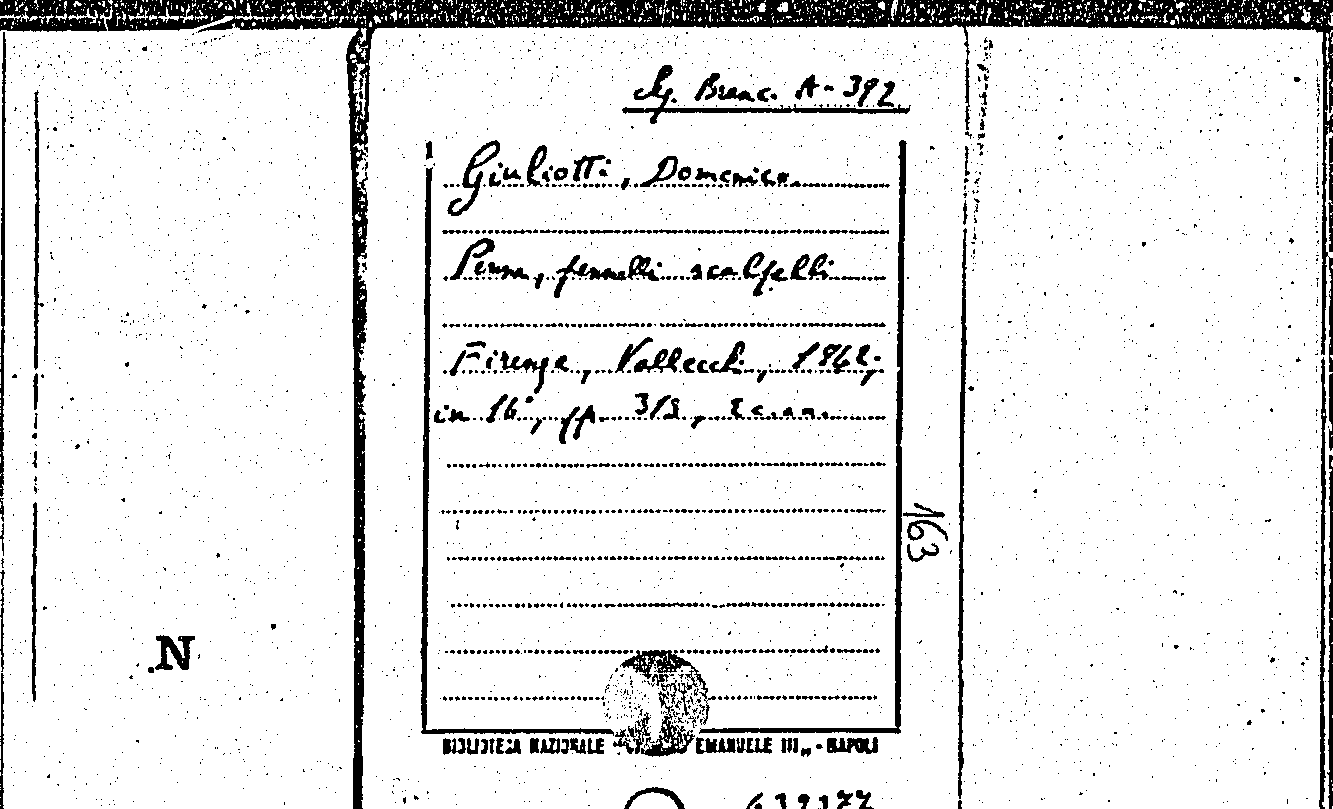 Sg. Branc. A-392
Giuliotti, Domenico.
Penna, pennelli scalpelli
Firenze, Vallecchi, 1942;
in 16°, pp. 313,
163
N
BIBLIOTECA NAZIONALE EMANUELE III„ - NAPOLI